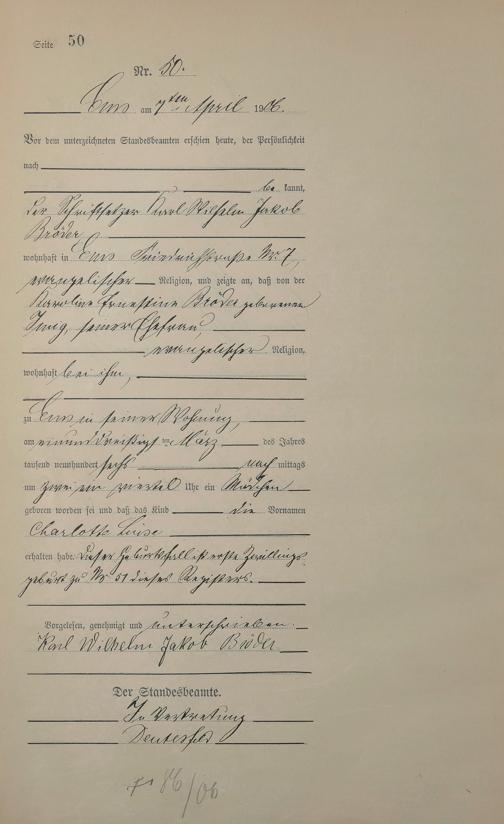 Seite 50
Nr. 50.
Ems am 7ten April 1906.
Vor dem unterzeichneten Standesbeamten erschien heute, der Persönlichkeit
nach
be kannt,
der Schriftsetzer Karl Wilhelm Jakob
Bröder
wohnhaft in Ems Friedrichstraße Nr. 7,
evangelischer Religion, und zeigte an, daß von der
Karoline Ernestine Bröder geborenen
seiner Ehefrau,
evangelischer Religion,
wohnhaft bei ihm,
zu Ems in seiner Wohnung,
am einunddreißigsten März des Jahres
tausend neunhundert sechs nach mittags
um zwei ein viertel Uhr ein Mädchen
geboren worden sei und daß das Kind die Vornamen
Charlotte Luise
erhalten habe. Dieser Geburtsfall ist erste Zwillings-
geburt zu Nr 51 dieses Registers.
Vorgelesen, genehmigt und unterschrieben.
Karl Wilhelm Jakob Bröder
Der Standesbeamte.
In Vertretung
86/06